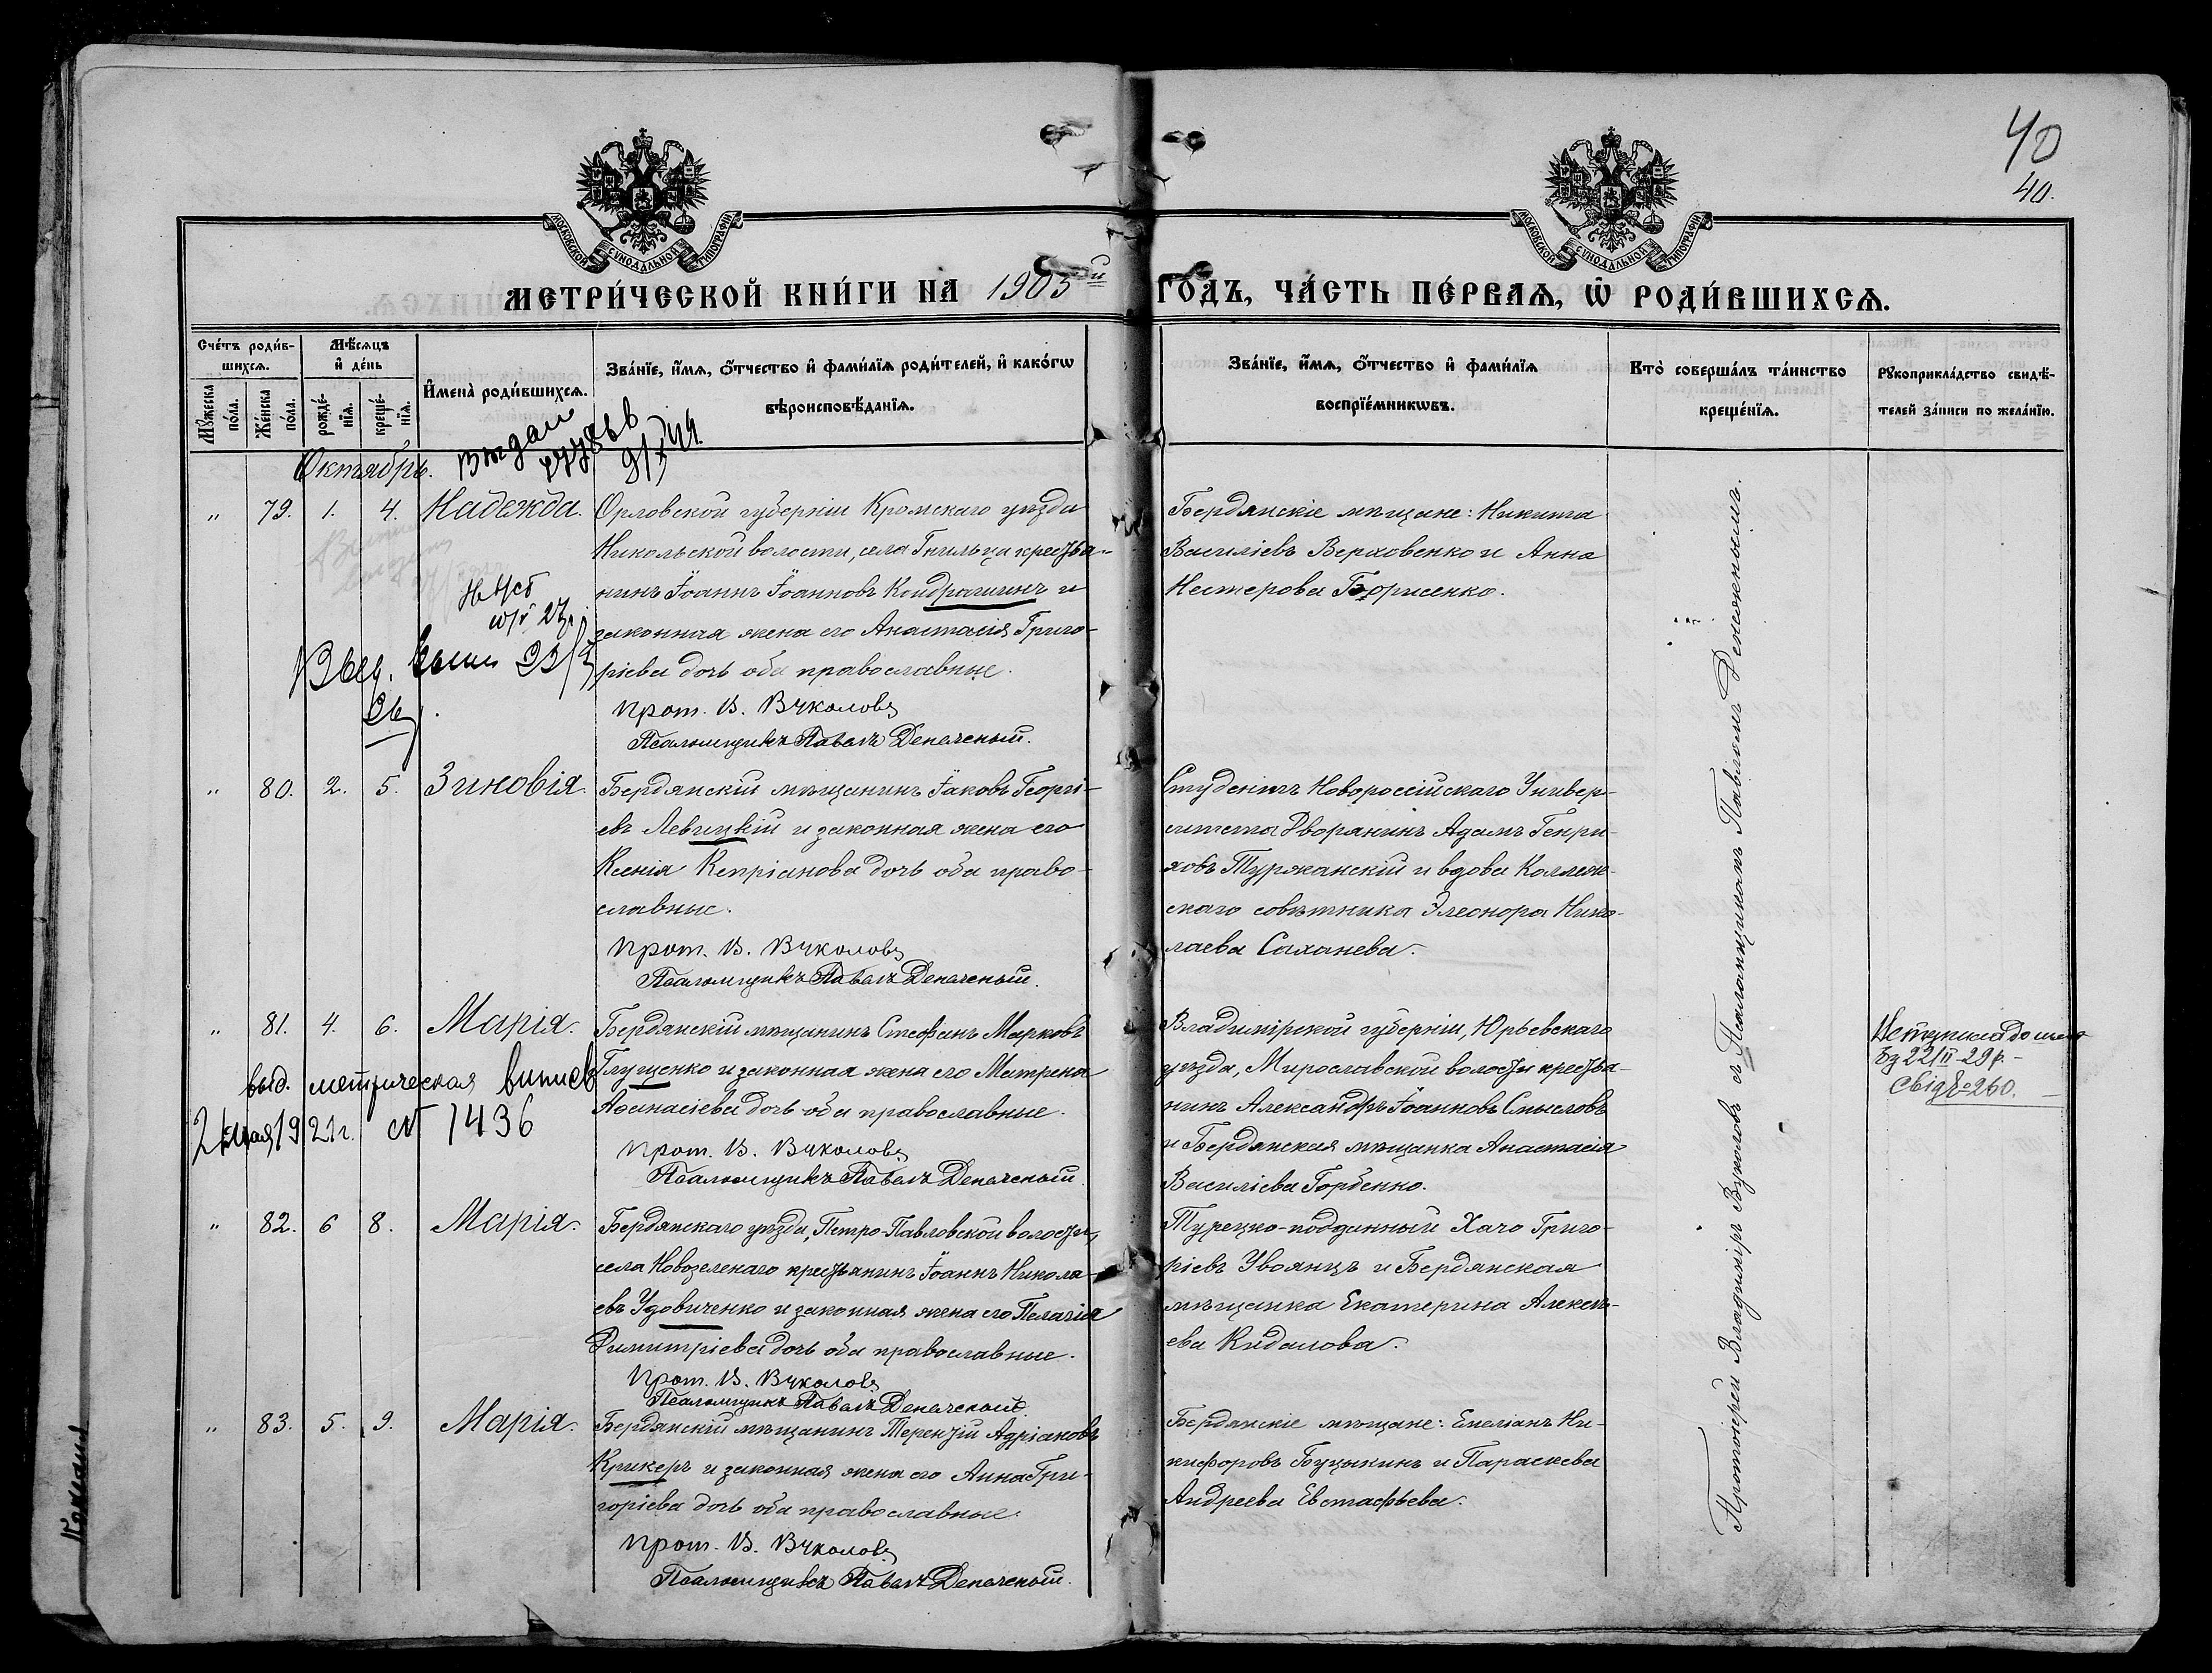 40
40.
МОСКОВСКОЙ СѴНОДАЛЬНОЙ ТИПОГРАФІИ
МОСКОВСКОЙ СѴНОДАЛЬНОЙ ТИПОГРАФІИ
МЕТРИ́ЧЕСКОЙ КНИ́ГИ НА 1905й ГО́ДЪ, ЧА́СТЬ ПЕ́РВАѦ, Ѡ҆ РОДИ́ВШИХСѦ.
Сче́тъ роди́в-
шихсѧ.
Мꙋ́жеска по́ла.
Же́нска по́ла.
Мѣ́сѧцъ
и҆ де́нь
рожде́-
нїѧ.
креще́-
нїѧ.
И҆мена̀ роди́вшихсѧ.
Зва́нїе, и҆́мѧ, ѻ҆́тчество и҆ фами́лїѧ роди́телей, и҆ како́гѡ
вѣроисповѣ́данїѧ.
Зва́нїе, и҆́мѧ, ѻ҆́тчество и҆ фами́лїѧ
воспрїе́мникѡвъ.
Кто̀ соверша́лъ та́инство
креще́нїѧ.
Рꙋкоприкла́дство свидѣ́-
телей за́писи по жела́нїю.
Октябрь.
„ 79. 1. 4. Надежда.
Орловской губерніи Кромскаго уѣзда
Никольской волости, села Гнильца крестья-
нинъ Іоаннъ Іоанновъ Кондрашинъ и
законная жена его Анастасія Григо-
ріева дочь оба православные.
Прот. В. Вуколовъ
Псаломщикъ Павелъ Денеженый.
Бердянскіе мѣщане: Никита
Василіевъ Верховенко и Анна
Нестерова Борисенко.
„ 80. 2. 5. Зиновія.
Бердянскій мѣщанинъ Іаковъ Георгі-
евъ Левицкій и законная жена его
Ксенія Кипріанова дочь оба право-
славные.
Прот. В. Вуколовъ
Псаломщикъ Павелъ Денеженый.
Студентъ Новороссійскаго Универ-
ситета Дворянинъ Адамъ Генри-
ховъ Туржанскій и вдова Коллеж-
скаго совѣтника Элеонора Нико-
лаева Саханева.
„ 81. 4. 6. Марія.
выд. метрическая выпись
2 мая 1921г. № 1436
Бердянскій мѣщанинъ Стефанъ Марковъ
Глущенко и законная жена его Матрена
Аѳанасіева дочь оба православные.
Прот. В. Вуколовъ
Псаломщикъ Павелъ Денеженый.
Владимірской губерніи, Юрьевскаго
уѣзда, Мирославской волости крестья-
нинъ Александръ Іоанновъ Смысловъ
и Бердянская мѣщанка Анастасія
Василіева Горбенко.
22/II-29р.-
260.
„ 82. 6 8. Марія.
Бердянскаго уѣзда, Петро-Павловской волости,
села Новозеленаго крестьянинъ Іоаннъ Никола-
евъ Удовиченко и законная жена его Пелагія
Димитріева дочь оба православные.
Прот. В. Вуколовъ
Псаломщикъ Павелъ Денеженый.
Турецко-подданный Хачо Григо-
ріевъ Увоянцъ и Бердянская
мѣщанка Екатерина Алексѣ-
ева Кидалова.
„ 83. 5. 9. Марія.
Бердянскій мѣщанинъ Терентій Адріановъ
Крикеръ и законная жена его Анна Гри-
горіева дочь оба православные.
Прот. В. Вуколовъ
Псаломщикъ Павелъ Денеженый.
Бердянскіе мѣщане: Емеліанъ Ни-
кифоровъ Буцыкинъ и Параскева
Андреева Евстафьева.
Протоіерей Владиміръ Вуколовъ съ Псаломщикомъ Павломъ Денеженымъ.